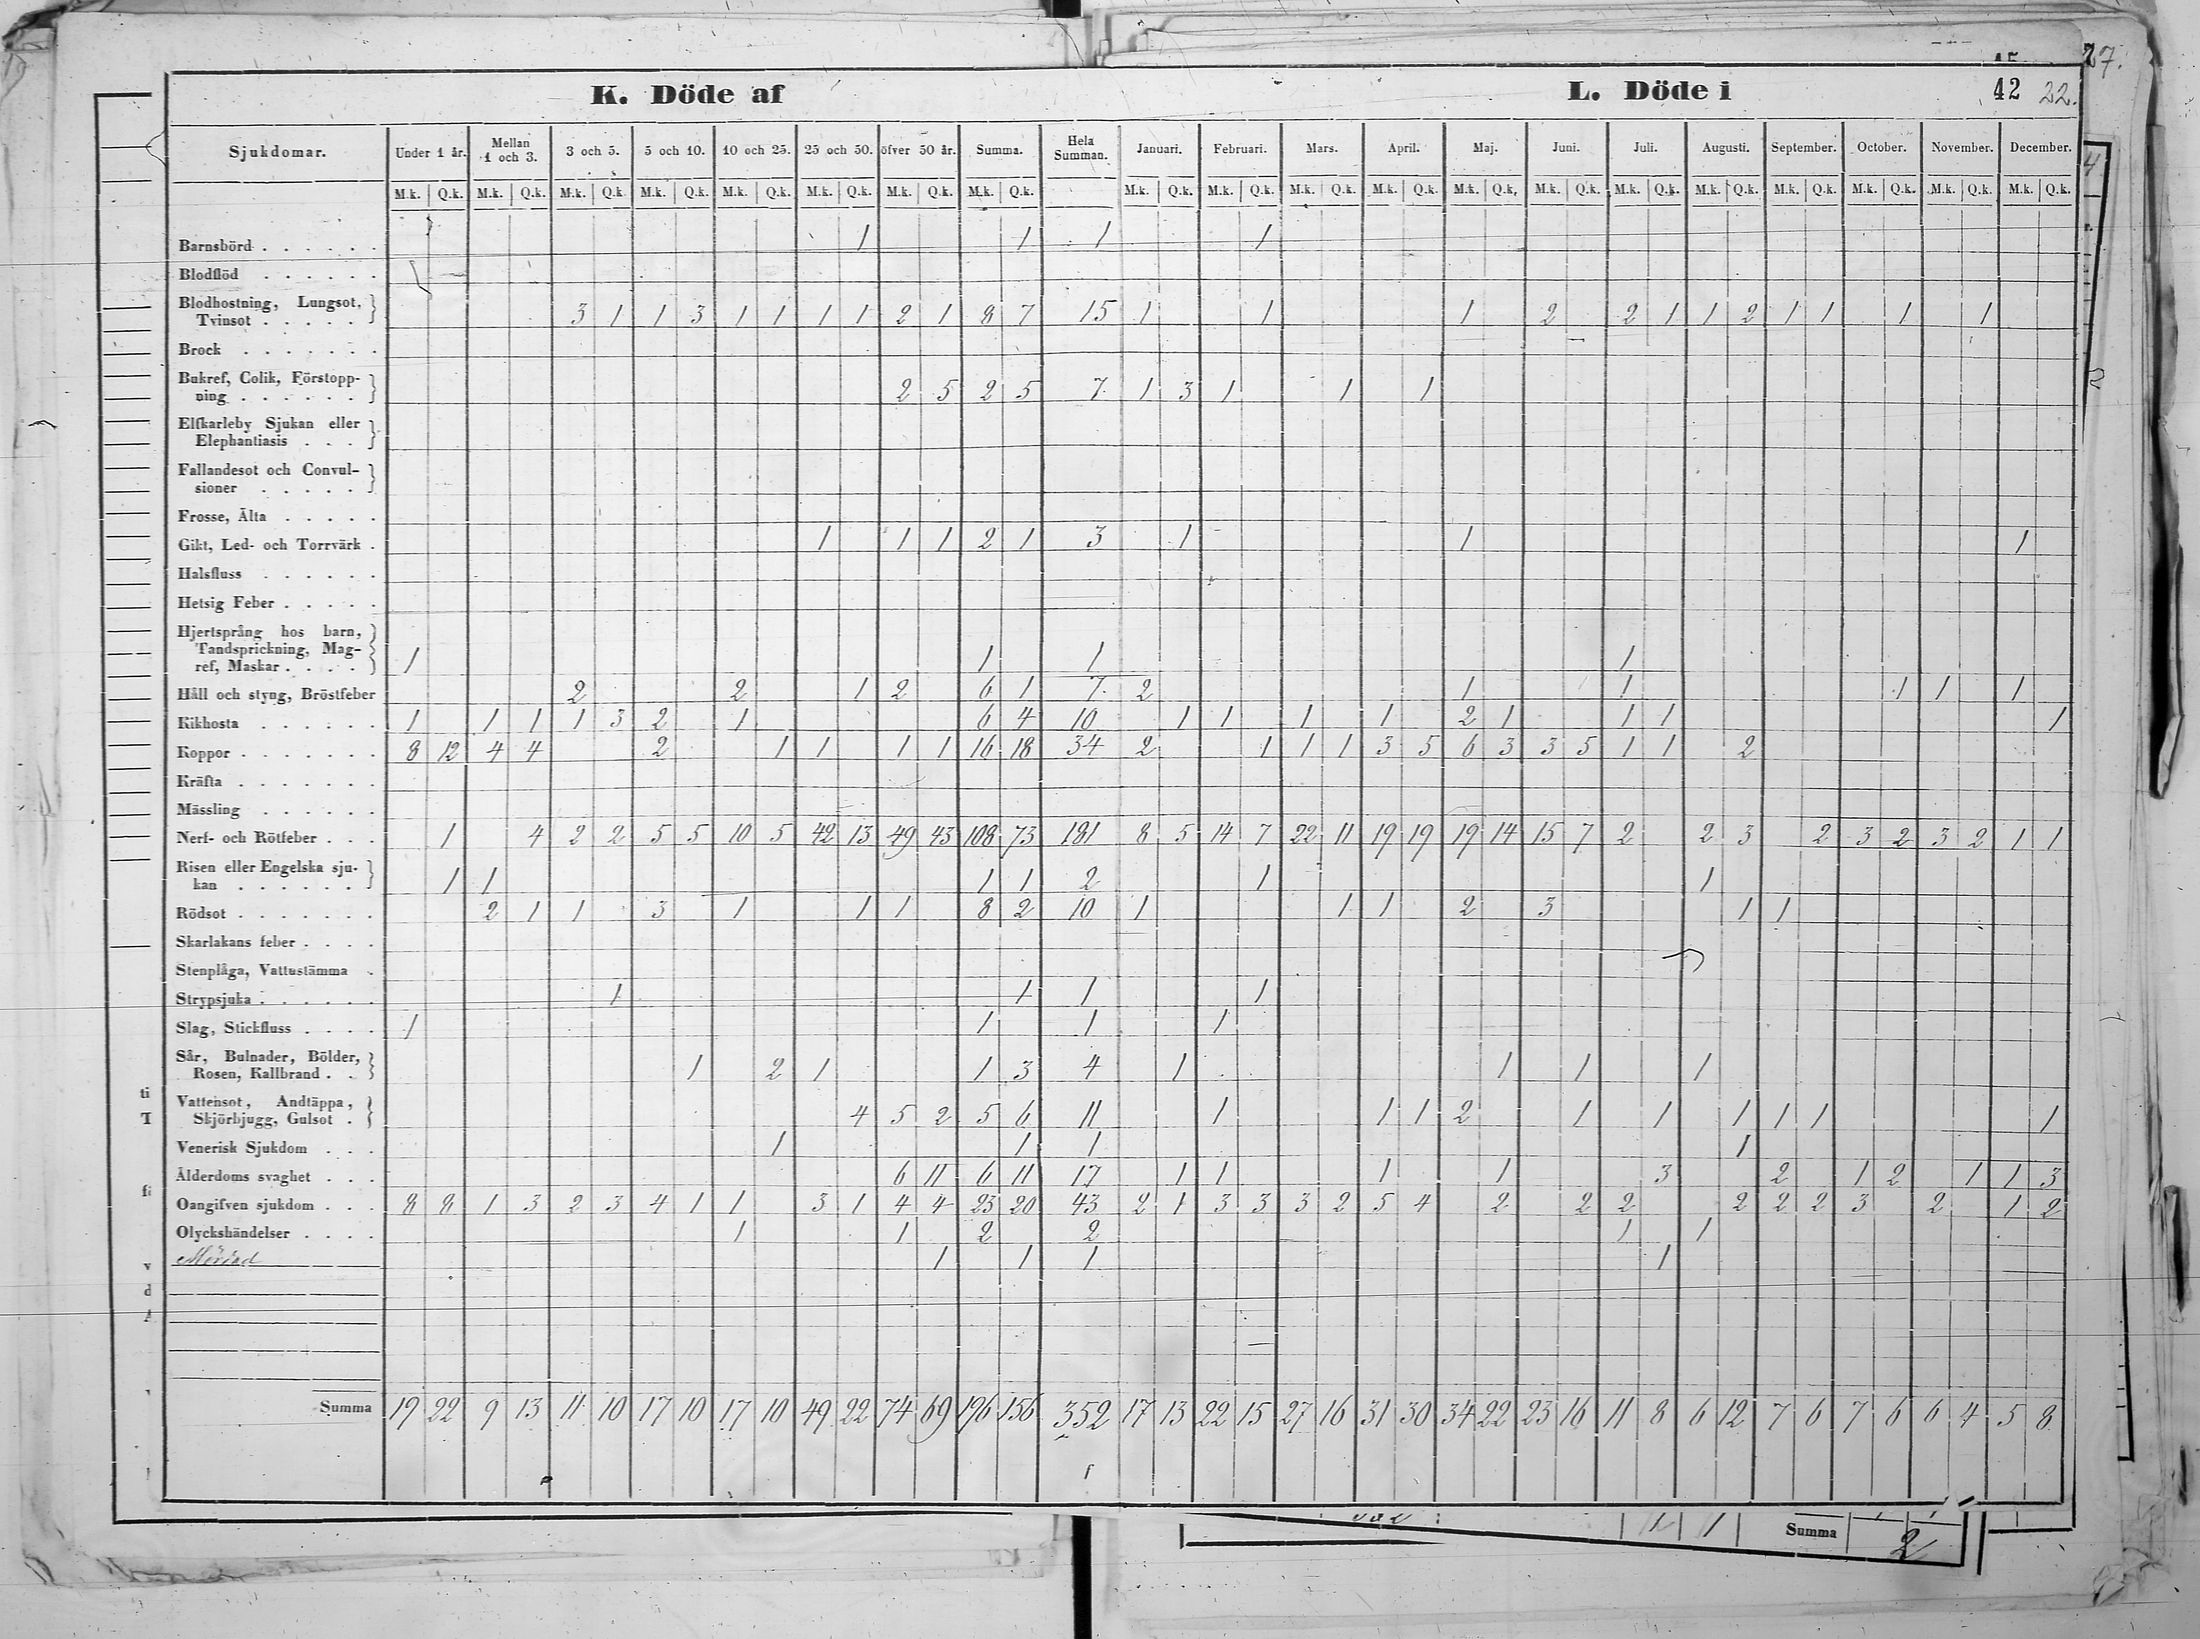 27.
K. Döde af L. Döde i 42 22.
Sjukdomar. Under 1 år. Mellan 1 och 3. 3 och 5. 5 och 10. 10 och 25. 25 och 50. öfver 50 år. Summa. Hela Summan. Januari. Februari. Mars. April. Maj. Juni. Juli. Augusti. September. October. November. December.
M.k. Q.k. M.k. Q.k. M.k. Q.k. M.k. Q.k. M.k. Q.k. M.k. Q.k. M.k. Q.k. M.k. Q.k. M.k. Q.k. M.k. Q.k. M.k. Q.k. M.k. Q.k. M.k. Q.k. M.k. Q.k. M.k. Q.k. M.k. Q.k. M.k. Q.k. M.k. Q.k. M.k. Q.k. M.k. Q.k.
Barnsbörd . . . . . . 1 1 1 1
Blodflöd . . . . . .
Blodhostning, Lungsot,
Tvinsot . . . . . 3 1 1 3 1 1 1 1 2 1 8 7 15 1 1 1 2 2 1 1 2 1 1 1 1
Brock . . . . . . .
Bukref, Colik, Förstopp-
ning . . . . . . 2 5 2 5 7 1 3 1 1 1
Elfkarleby Sjukan eller
Elephantiasis . . .
Fallandesot och Convul-
sioner . . . . .
Frosse, Älta . . . . .
Gikt, Led- och Torrvärk . 1 1 1 2 1 3 1 1 1
Halsfluss . . . . . .
Hetsig Feber . . . . .
Hjertsprång hos barn,
Tandsprickning, Mag-
ref, Maskar . . . . 1 1 1 1
Håll och styng, Bröstfeber 2 2 1 2 6 1 7 2 1 1 1 1 1
Kikhosta . . . . . . 1 1 1 1 3 2 1 6 4 10 1 1 1 1 2 1 1 1 1
Koppor . . . . . . . 8 12 4 4 2 1 1 1 1 16 18 34 2 1 1 1 3 5 6 3 3 5 1 1 2
Kräfta . . . . . . .
Mässling . . . . . .
Nerf- och Rötfeber . . . 1 4 2 2 5 5 10 5 42 13 49 43 108 73 181 8 5 14 7 22 11 19 19 19 14 15 7 2 2 3 2 3 2 3 2 1 1
Risen eller Engelska sju-
kan . . . . . . 1 1 1 1 2 1 1
Rödsot . . . . . . . 2 1 1 3 1 1 1 8 2 10 1 1 1 2 3 1 1
Skarlakans feber . . . .
Stenplåga, Vattustämma .
Strypsjuka . . . . . . 1 1 1 1
Slag, Stickfluss . . . . 1 1 1 1
Sår, Bulnader, Bölder,
Rosen, Kallbrand . . 1 2 1 1 3 4 1 1 1 1
Vattensot, Andtäppa,
Skjörbjugg, Gulsot . 4 5 2 5 6 11 1 1 1 2 1 1 1 1 1 1
Venerisk Sjukdom . . . 1 1 1 1
Ålderdoms svaghet . . . 6 11 6 11 17 1 1 1 1 3 2 1 2 1 1 3
Oangifven sjukdom . . . 8 8 1 3 2 3 4 1 1 3 1 4 4 23 20 43 2 1 3 3 3 2 5 4 2 2 2 2 2 2 3 2 1 2
Olyckshändelser . . . . 1 1 2 2 1 1
1 1 1 1
Summa 19 22 9 13 11 10 17 10 17 10 49 22 74 69 196 156 352 17 13 22 15 27 16 31 30 34 22 23 16 11 8 6 12 7 6 7 6 6 4 5 8
1 1 Summa 2